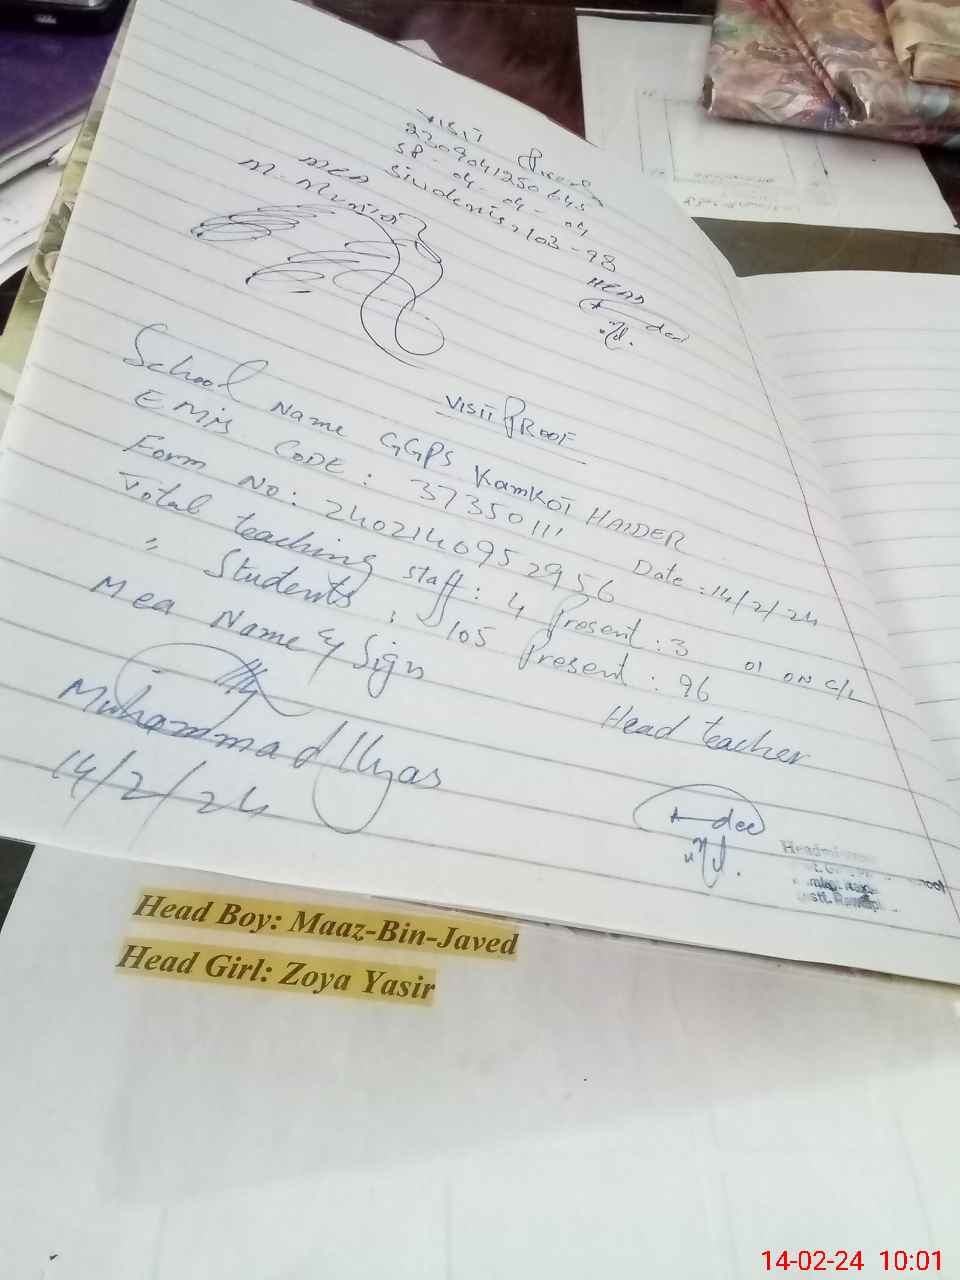 VISIT Proof
2209041250645
S8 - 04 - 04 - 04
Students, 103 - 98
MEA
HEAD
VISIT PROOF
School Name GGPS KamKot HAIDER
EMIS CODE : 37350111
Form No: 2402140952956 Date : 14/2/24
Total teaching staff : 4 Present : 3 01 ON C/L
" Students : 105 Present : 96
Mea Name & Sign
Head teacher
Muhammad Ilyas
14/2/24
Head Boy: Maaz-Bin-Javed
Head Girl: Zoya Yasir
14-02-24 10:01